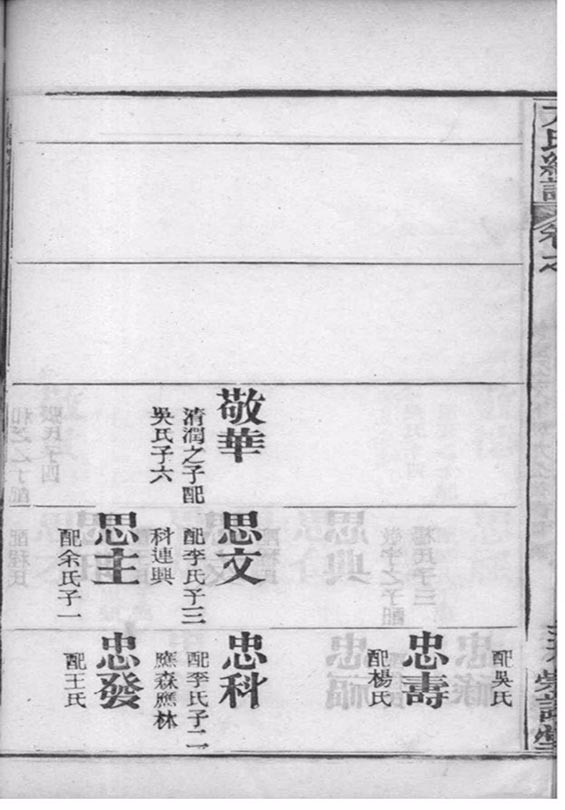 氏續譜
卷之
敬華
清潤之子配
吳氏子六
思文
配李氏子三
科連興
思主
配余氏子一
配吳氏
忠壽
配楊氏
忠科
配李氏子二
應森應林
忠發
配王氏